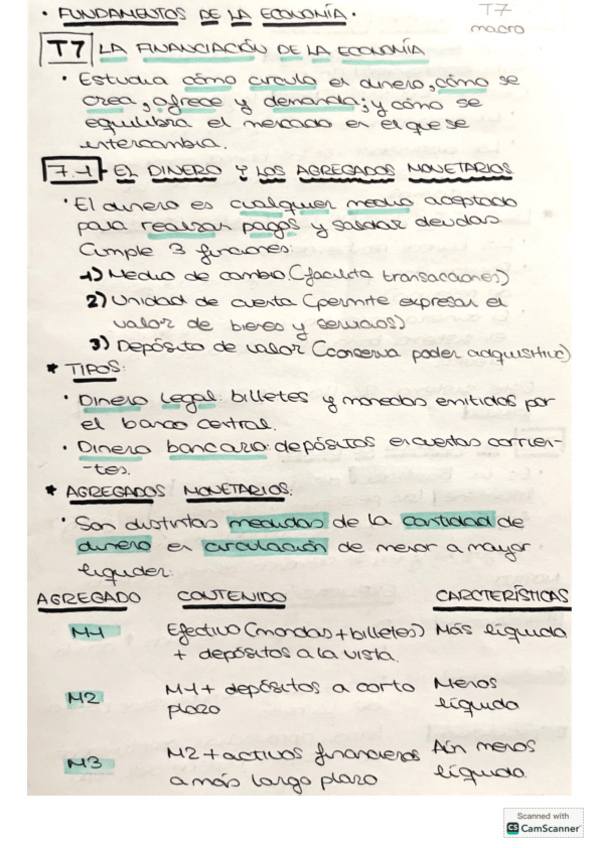 • FUNDAMENTOS DE LA ECONOMÍA •
T7
macro
T7 LA FINANCIACIÓN DE LA ECONOMÍA
• Estudia cómo circula el dinero, cómo se
crea, ofrece y demanda; y cómo se
equilibra el mercado en el que se
intercambia.
7.1 EL DINERO Y LOS AGREGADOS MONETARIOS
• El dinero es cualquier medio aceptado
para realizar pagos y saldar deudas
Cumple 3 funciones:
1) Medio de cambio (facilita transacciones)
2) Unidad de cuenta (permite expresar el
valor de bienes y servicios)
3) Depósito de valor (conserva poder adquisitivo)
* TIPOS:
• Dinero legal: billetes y monedas emitidos por
el banco central.
• Dinero bancario: depósitos en cuentas corrien-
-tes.
* AGREGADOS MONETARIOS:
• Son distintas medidas de la cantidad de
dinero en circulación de menor a mayor
liquidez:
AGREGADO CONTENIDO CARCTERÍSTICAS
M1 Efectivo (mondas + billetes) Más líquido
+ depósitos a la vista.
M2 M1 + depósitos a corto Menos
plazo líquido
M3 M2 + activos financieros Aún menos
a más largo plazo líquido.
Scanned with
CS CamScanner